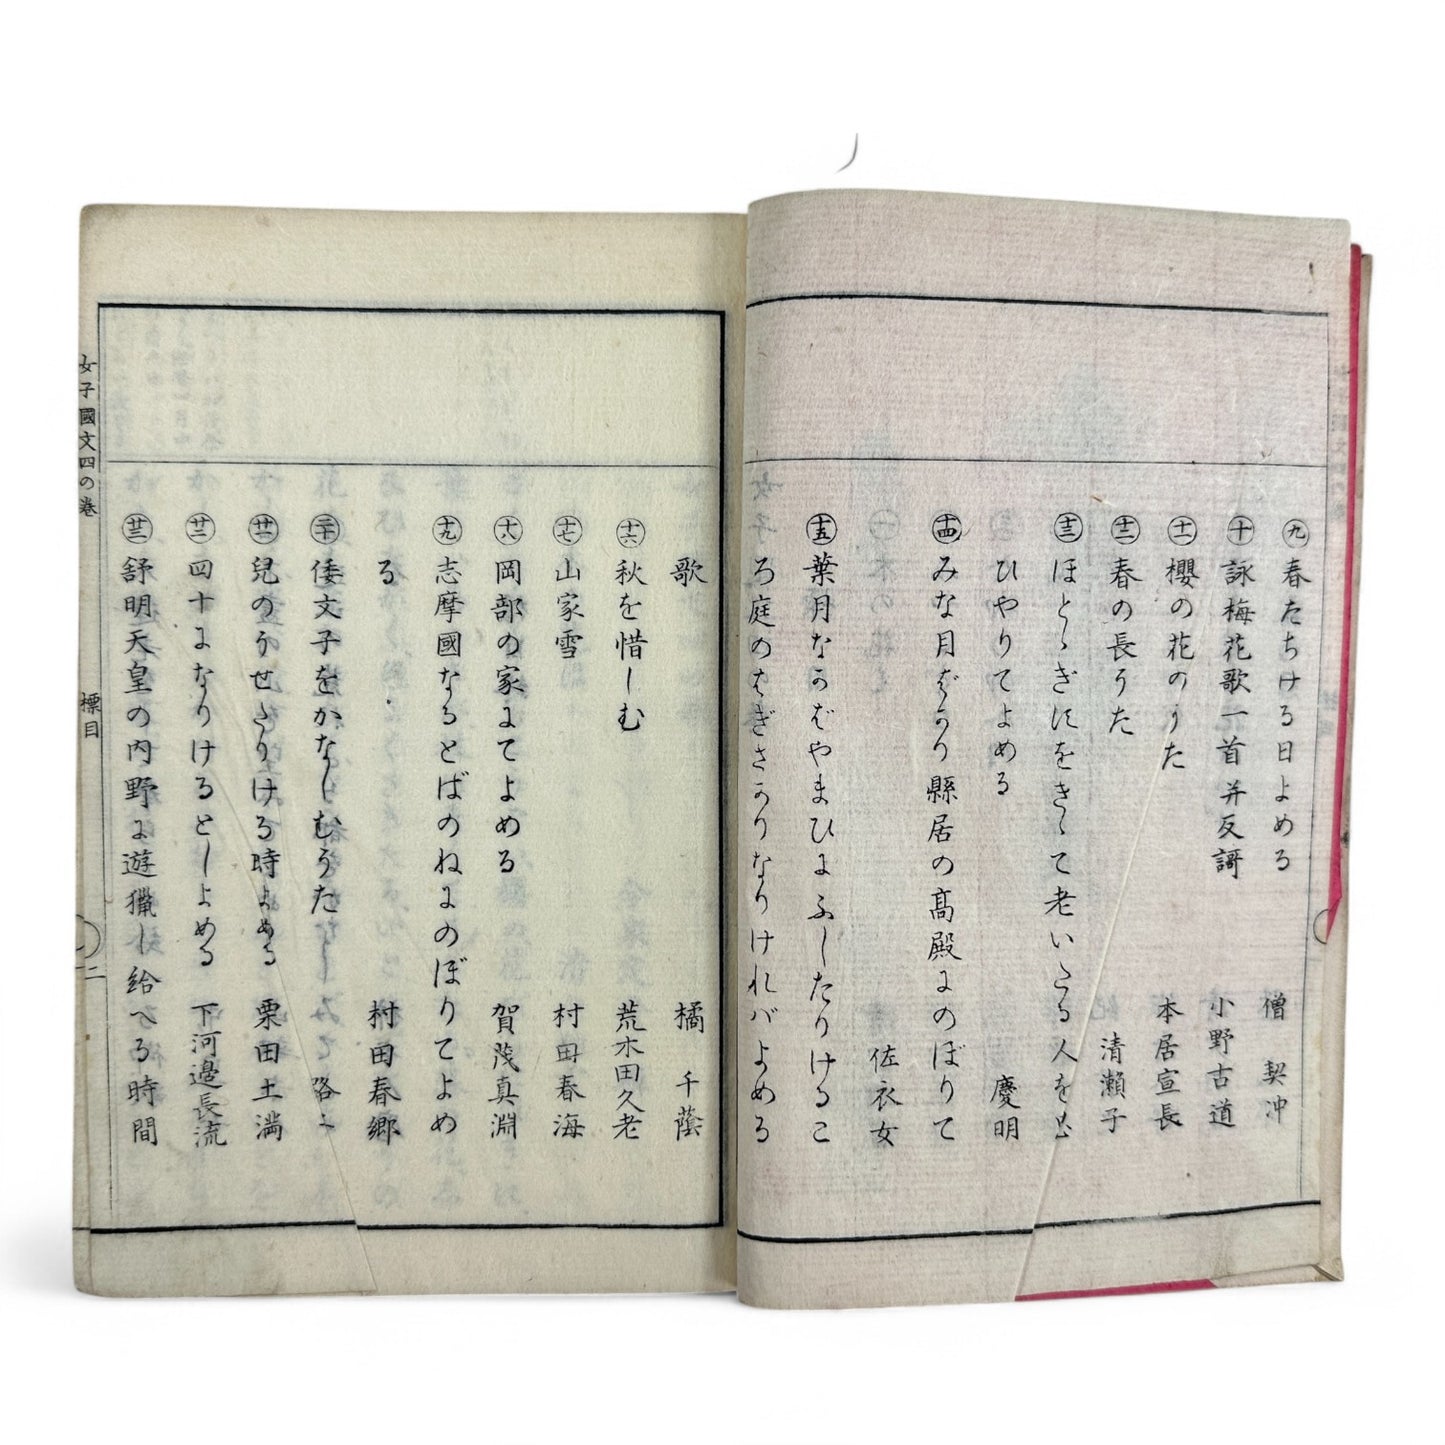 ㊈春たちける日よめる　僧　契沖
㊉詠梅花歌一首并反謌　小野古道
十一 櫻の花のうた　本居宣長
十二 春の長うた　清瀬子
十三 ほとゝぎすをきゝて老いたる人を思
ひやりてよめる　慶明
十四 みな月ばかり縣居の髙殿にのぼりて
佐衣女
十五 葉月なかばやまひにふしたりけるこ
ろ庭のはぎさかりなりければよめる
歌　橘　千蔭
十六 秋を惜しむ　荒木田久老
十七 山家雪　村田春海
十八 岡部の家にてよめる　賀茂真淵
十九 志摩國なるとばのねにのぼりてよめ
る　村田春郷
二十 倭文子をかなしむうた
廿一 兒のうせたりける時よめる　栗田土満
廿二 四十になりけるとしよめる　下河邉長流
廿三 舒明天皇の内野に遊獵し給へる時間
女子國文四の巻　標目　二